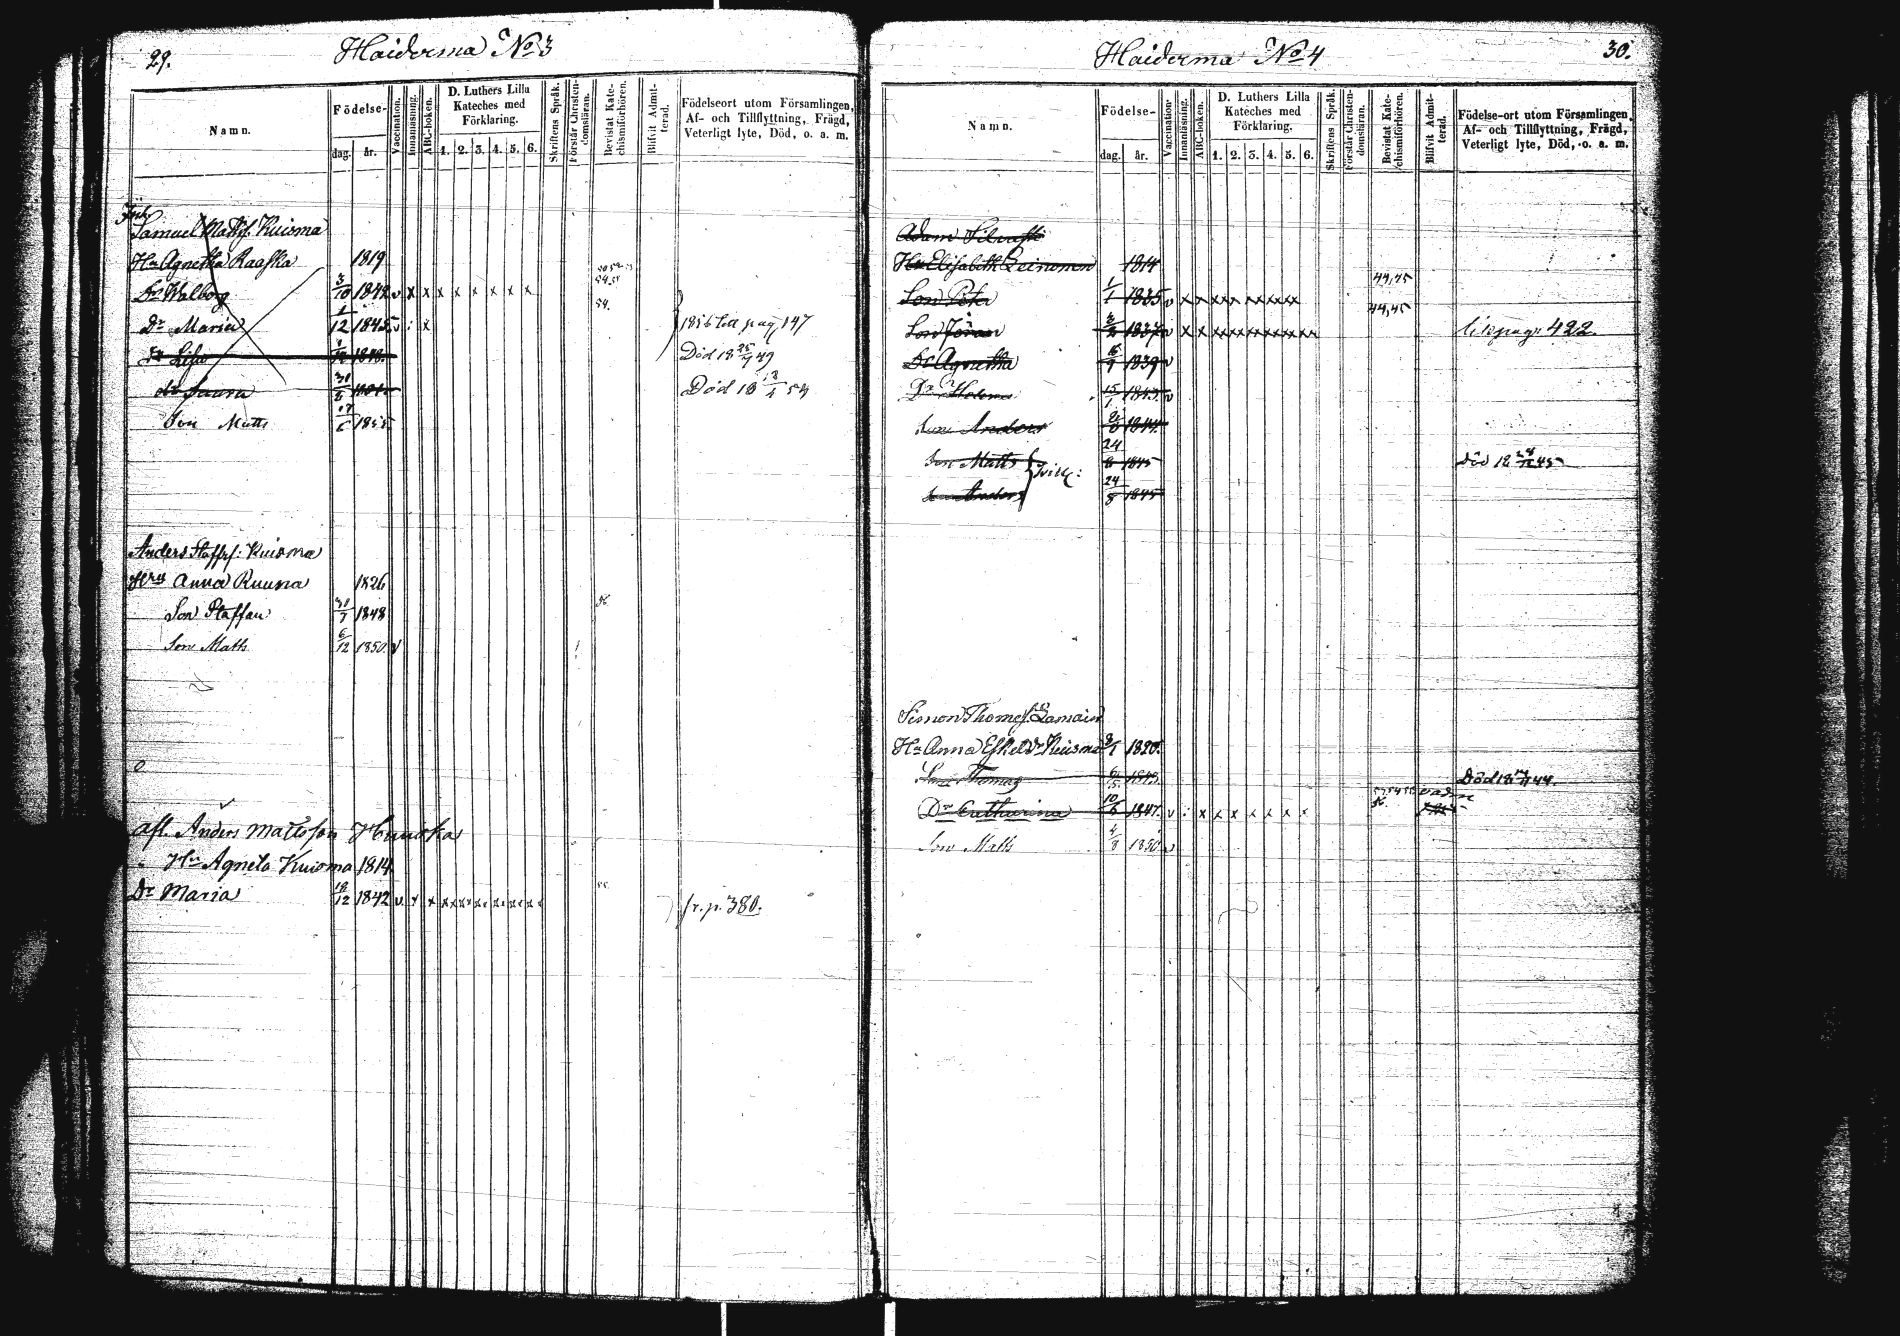 29.
Haiderma No 3
Namn.
Födelse-
dag.
år.
Vaccination.
Innanläsning.
ABC-boken.
D. Luthers Lilla
Kateches med
Förklaring.
1. 2. 3. 4. 5. 6.
Skriftens Språk.
Förstår Christen-
domsläran.
Bevistat Kate-
chismiförhören.
Blifvit Admit-
terad.
Födelseort utom Församlingen,
Af- och Tillflyttning, Frägd,
Veterligt lyte, Död, o. a. m.
Samuel Matts. Kuisma
Hu Agnetha Raaska 1819
Dr Walborg 3/10 1842 v x x x x x x x x
54.
Dr Maria 1/12 1845 v : x 1856 till pag 147
Dr Lisa 1848 Död 18 25/7 49
dr Anna 1851 Död 18
Son Matts 17/6 1855
Anders Staffs: Kuisma
Hru Anna Ruuna 1826
Son Staffan 31/7 1848 56
Son Matts 6/12 1850 v
afl. Anders Mattsson
Hu Agneta Kuisma 1814
Dr Maria 18/12 1842 v x x x x x x x x x 55.
fr. p. 380.
Haiderma No 4
30.
Namn.
Födelse-
dag.
år.
Vaccination
Innanläsning.
ABC-boken.
D. Luthers Lilla
Kateches med
Förklaring.
1. 2. 3. 4. 5. 6.
Skriftens Språk.
Förstår Christen-
domsläran.
Bevistat Kate-
chismiförhören.
Blifvit Admit-
terad.
Födelse-ort utom Församlingen,
Af- och Tillflyttning, Frägd,
Veterligt lyte, Död, o. a. m.
Adam
Hu Elisabeth Leinonen 1814
44,45
Son Peter 1/1 1835 v x x x x x x x x x
44,45
Son Jöran 1837 v x x x x x x x x x till pag: 422.
Dr Agnetha 1839 v
Dr Helena 15/1 1843 v
Son Anders 1844
Son Matts 24/8 1845 Död 18 45
Tvill:
Son Anders 24/8 1845
Simon Thomess. Lamain
Hu Anna Eskelsdr Kuisma 3/1 1820
Son Thomas 6/5 1843 Död 18 44.
Dr Catharina 10/6 1847 v : x x x x x x x
56.
Son Matts 4/8 1850 v